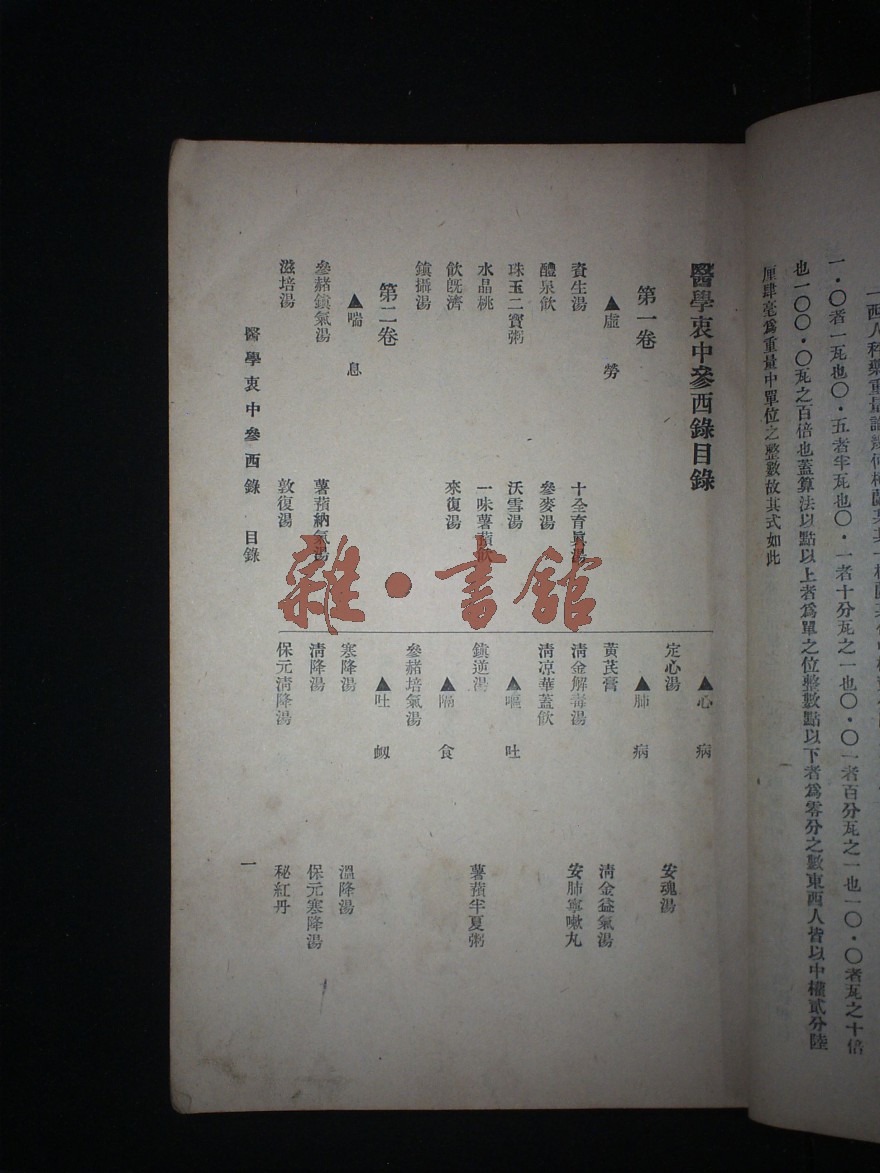 一西人秤藥重量
一·〇者一瓦也〇·五者半瓦也〇·一者十分瓦之一也〇·〇一者百分瓦之一也一〇·〇者瓦之十倍
也一〇〇·〇瓦之百倍也蓋算法以點以上者爲單之位整數點以下者爲零分之數東西人皆以中權貳分陸
厘肆毫爲重量中單位之整數故其式如此
醫學衷中參西錄目錄
第一卷
▲虛勞
資生湯 十全育眞湯
醴泉飲 參麥湯
珠玉二寶粥 沃雪湯
水晶桃 一味薯蕷飲
飲既濟 來復湯
鎮攝湯
第二卷
▲喘息
參赭鎮氣湯 薯蕷納氣湯
滋培湯 敦復湯
▲心病
定心湯 安魂湯
▲肺病
黃芪膏 清金益氣湯
清金解毒湯 安肺寧嗽丸
清凉華蓋飲
▲嘔吐
鎮逆湯 薯蕷半夏粥
▲膈食
參赭培氣湯
▲吐衂
寒降湯 溫降湯
清降湯 保元寒降湯
保元清降湯 秘紅丹
醫學衷中參西錄 目錄 一
雜·書館